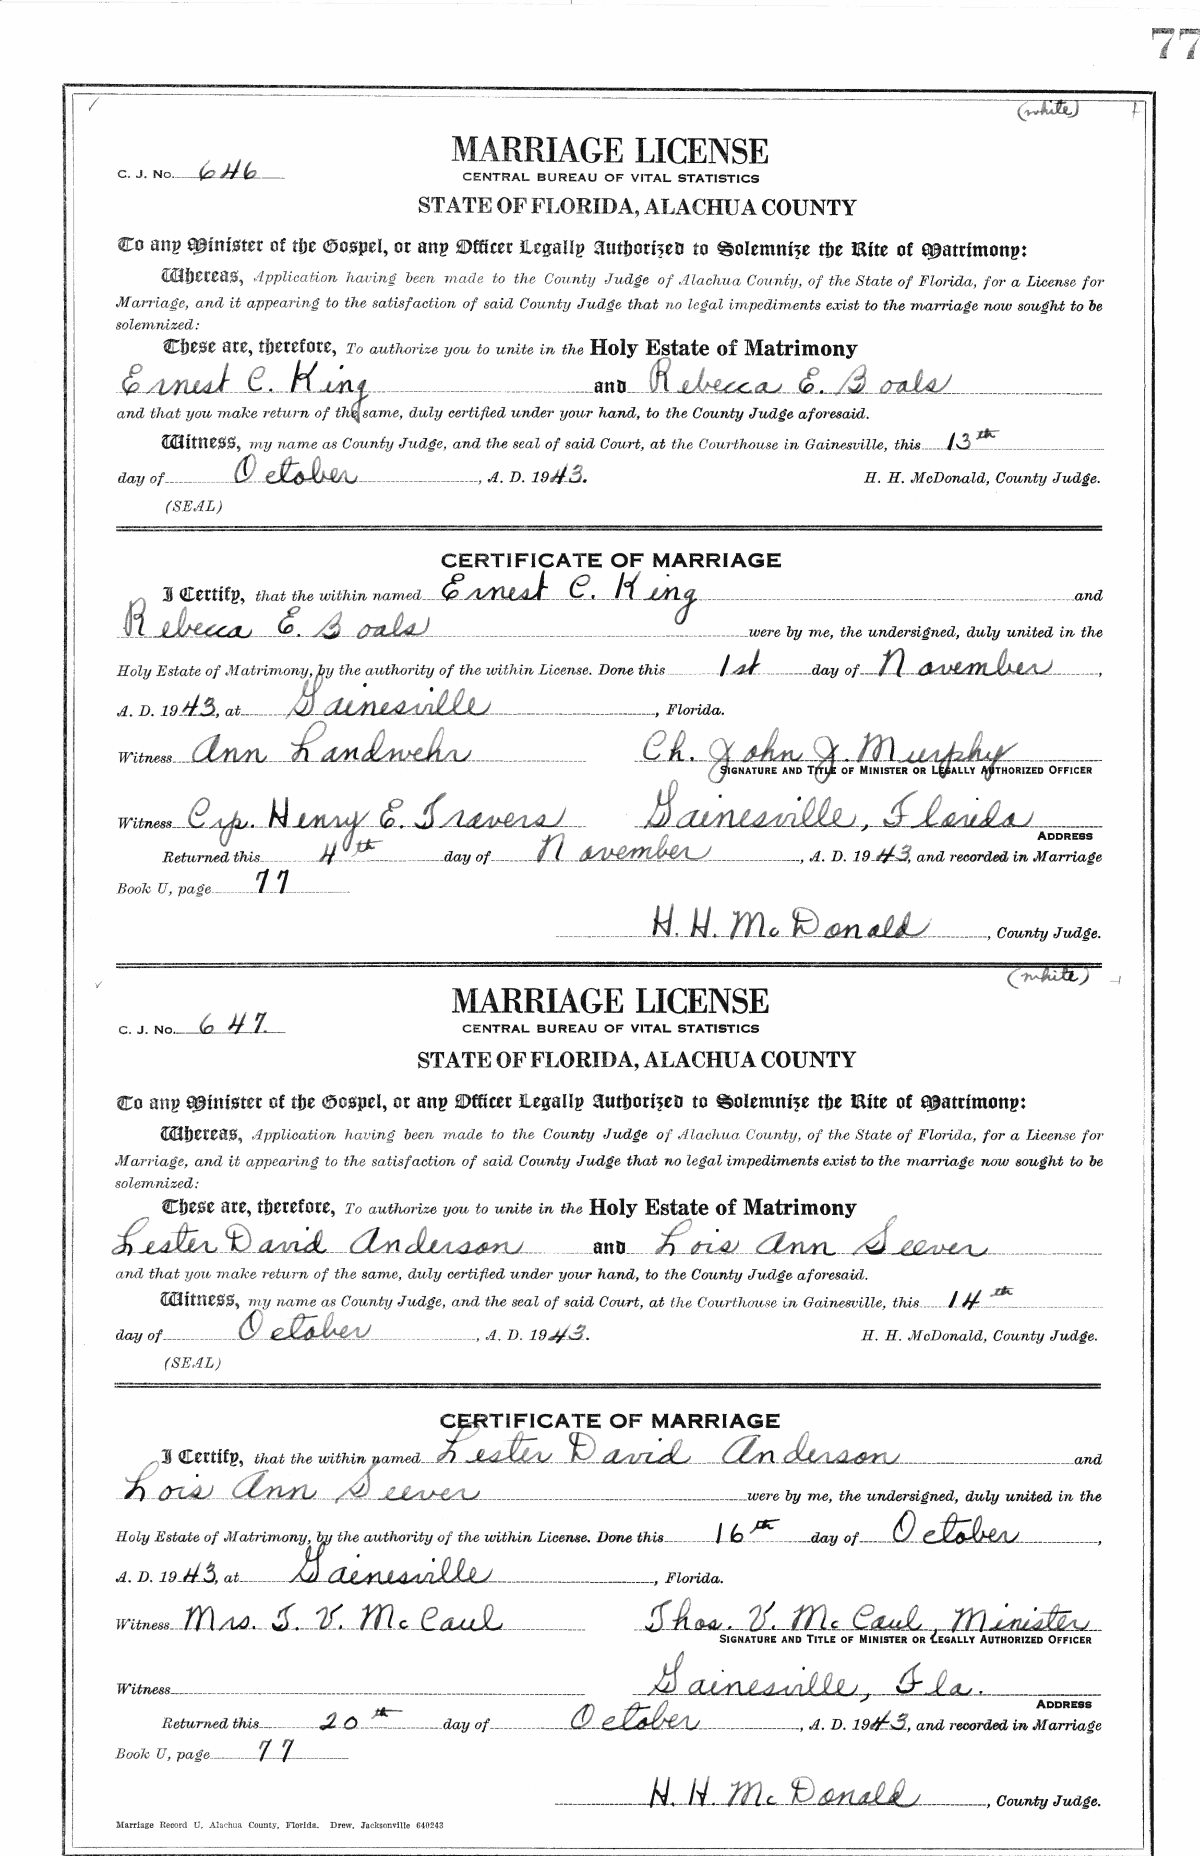 77
(white)
MARRIAGE LICENSE
C. J. No. 646
CENTRAL BUREAU OF VITAL STATISTICS
STATE OF FLORIDA, ALACHUA COUNTY
To any Minister of the Gospel, or any Officer Legally Authorized to Solemnize the Rite of Matrimony:
Whereas, Application having been made to the County Judge of Alachua County, of the State of Florida, for a License for
Marriage, and it appearing to the satisfaction of said County Judge that no legal impediments exist to the marriage now sought to be
solemnized:
These are, therefore, To authorize you to unite in the Holy Estate of Matrimony
Ernest C. King and Rebecca E. Boals
and that you make return of the same, duly certified under your hand, to the County Judge aforesaid.
Witness, my name as County Judge, and the seal of said Court, at the Courthouse in Gainesville, this 13th
day of October, A. D. 1943. H. H. McDonald, County Judge.
(SEAL)
CERTIFICATE OF MARRIAGE
I Certify, that the within named Ernest C. King and
Rebecca E. Boals were by me, the undersigned, duly united in the
Holy Estate of Matrimony, by the authority of the within License. Done this 1st day of November,
A. D. 1943, at Gainesville, Florida.
Witness Ann Landwehr Ch. John J. Murphy
SIGNATURE AND TITLE OF MINISTER OR LEGALLY AUTHORIZED OFFICER
Witness Crp. Henry E. Travers Gainesville, Florida
ADDRESS
Returned this 4th day of November, A. D. 1943, and recorded in Marriage
Book U, page 77
H. H. McDonald, County Judge.
(white)
MARRIAGE LICENSE
C. J. No. 647.
CENTRAL BUREAU OF VITAL STATISTICS
STATE OF FLORIDA, ALACHUA COUNTY
To any Minister of the Gospel, or any Officer Legally Authorized to Solemnize the Rite of Matrimony:
Whereas, Application having been made to the County Judge of Alachua County, of the State of Florida, for a License for
Marriage, and it appearing to the satisfaction of said County Judge that no legal impediments exist to the marriage now sought to be
solemnized:
These are, therefore, To authorize you to unite in the Holy Estate of Matrimony
Lester David Anderson and Lois Ann Seever
and that you make return of the same, duly certified under your hand, to the County Judge aforesaid.
Witness, my name as County Judge, and the seal of said Court, at the Courthouse in Gainesville, this 14th
day of October, A. D. 1943. H. H. McDonald, County Judge.
(SEAL)
CERTIFICATE OF MARRIAGE
I Certify, that the within named Lester David Anderson and
Lois Ann Seever were by me, the undersigned, duly united in the
Holy Estate of Matrimony, by the authority of the within License. Done this 16th day of October,
A. D. 1943, at Gainesville, Florida.
Witness Mrs. T. V. McCaul Thos. V. McCaul, Minister
SIGNATURE AND TITLE OF MINISTER OR LEGALLY AUTHORIZED OFFICER
Witness Gainesville, Fla.
ADDRESS
Returned this 20th day of October, A. D. 1943, and recorded in Marriage
Book U, page 77
H. H. McDonald, County Judge.
Marriage Record U, Alachua County, Florida. Drew, Jacksonville 640243